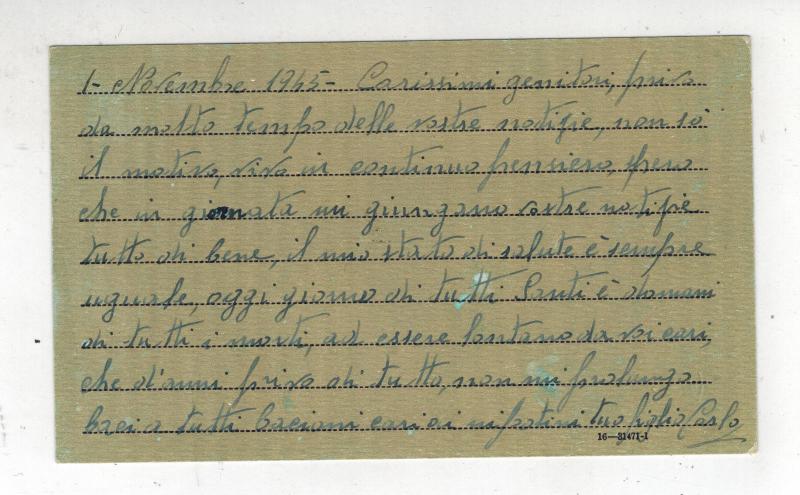 1- Novembre 1945 - Carissimi genitori, privo
da molto tempo delle vostre notizie, non sò
il motivo, vivo in continuo pensiero, spero
che in giornata mi giungano vostre notizie
tutto di bene, il mio stato di salute è sempre
uguale, oggi giorno di tutti Santi è domani
di tutti i morti, ad essere lontano da voi cari,
che d'anni privo di tutto, non mi prolungo
baci a tutti bacioni cari ai nipotini tuo figlio Carlo
16—31471-1